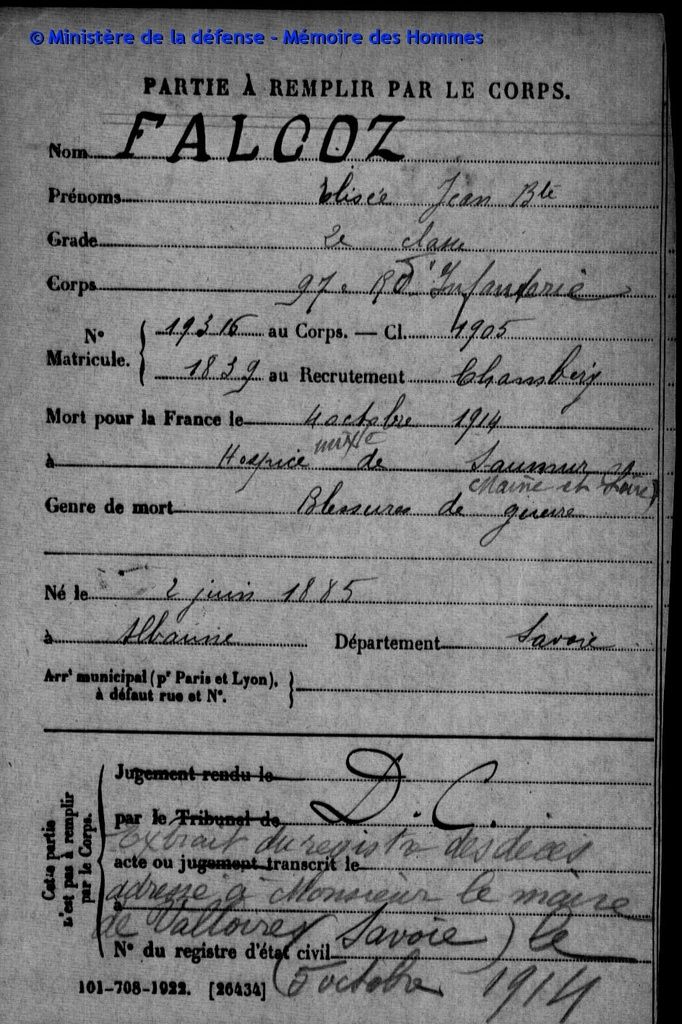 © Ministère de la défense - Mémoire des Hommes
PARTIE À REMPLIR PAR LE CORPS.
Nom FALCOZ
Prénoms Elisée Jean Bte
Grade 2e classe
Corps 97e RG d'Infanterie
N° Matricule. { 19316 au Corps. — Cl. 1905
1839 au Recrutement Chambéry
Mort pour la France le 4 octobre 1914
à Hospice mixte de Saumur
(Maine et Loire)
Genre de mort Blessures de guerre
Né le 2 juin 1885
à Albanne Département Savoie
Arrt municipal (pr Paris et Lyon), à défaut rue et N°. }
Cette partie n'est pas à remplir par le Corps.
Jugement rendu le
par le Tribunal de D. C.
Extrait du registre des décès
acte ou jugement transcrit le
adressé à Monsieur le maire
de Valloires (Savoie) le
N° du registre d'état civil
5 octobre 1914
101-708-1922. [26434]